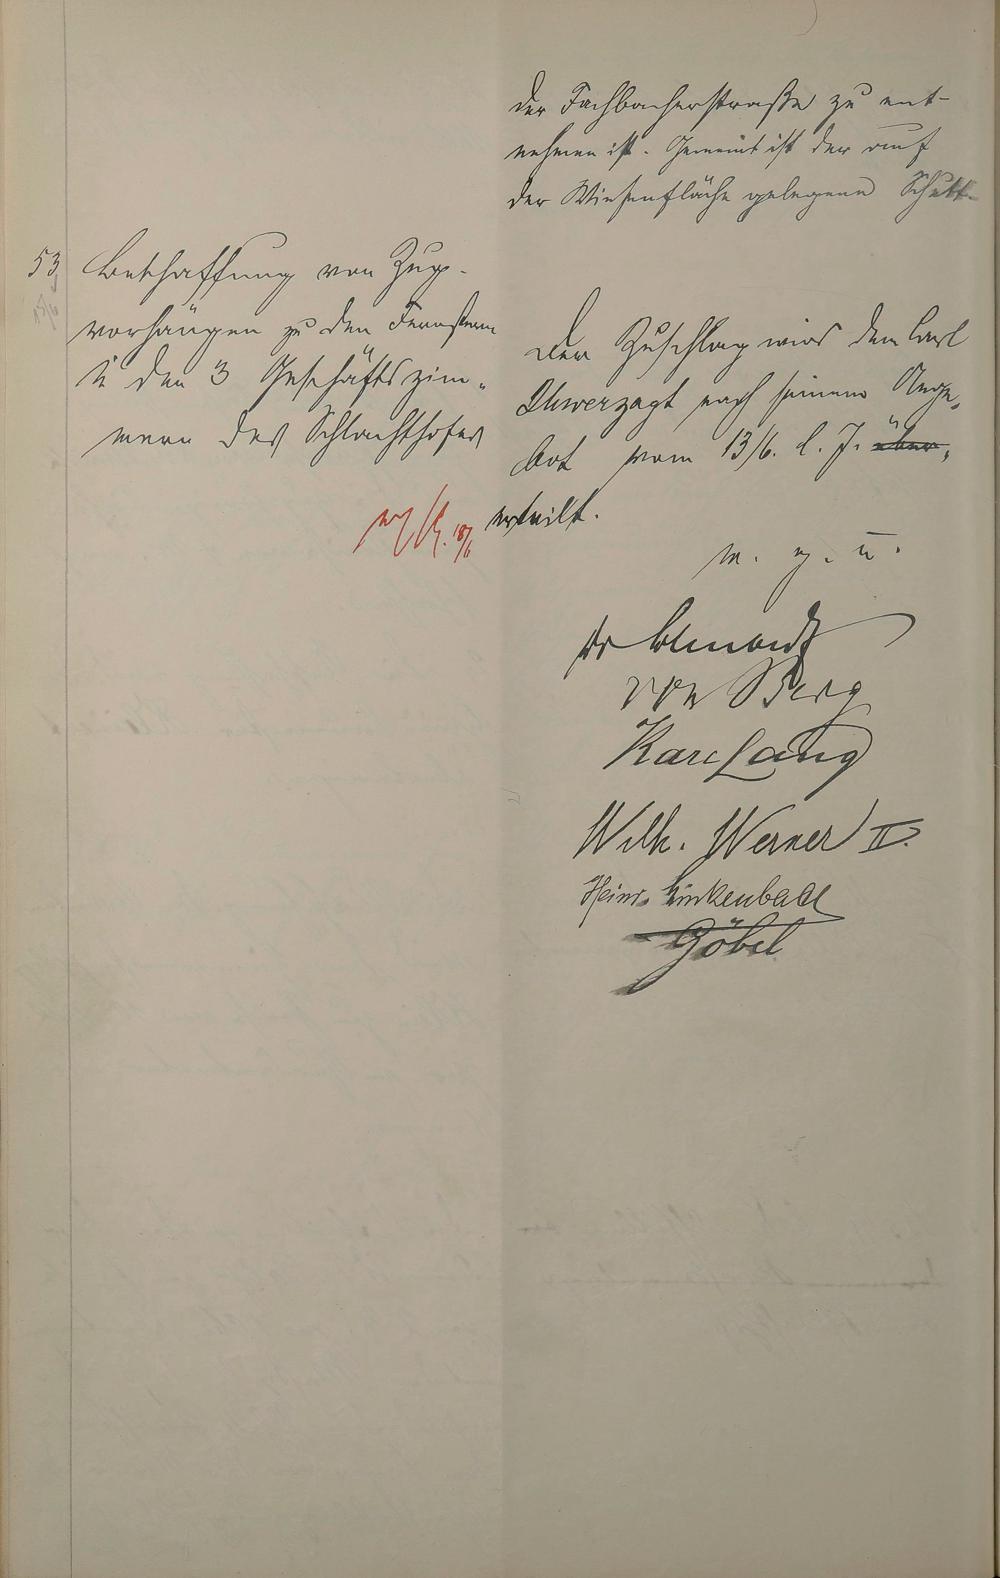 der Fachbacherstraße zu ent-
nehmen ist. Gemeint ist der auf
der Wiesenfläche gelegene Schutt-
53 Beschaffung von Zug-
vorhängen zu den Fenstern
in den 3 Geschäftszim-
mern des Schlachthofes
Der Zuschlag wird dem Carl
Unverzagt nach seinem Ange-
bot vom 13/6. l. J. über-
erteilt.
18/6
v. g. u.
von Berg
Karl Lang
Wilh. Werner II.
Heinr. Linkenbach
Göbel